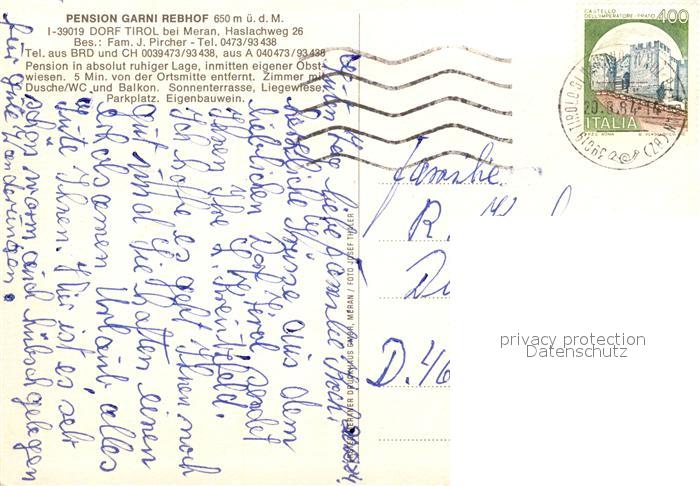 PENSION GARNI REBHOF 650 m ü. d. M.
I-39019 DORF TIROL bei Meran, Haslachweg 26
Bes.: Fam. J. Pircher - Tel. 0473/93438
Tel. aus BRD und CH 0039473/93438, aus A 040473/93438
Pension in absolut ruhiger Lage, inmitten eigener Obst-
wiesen. 5 Min. von der Ortsmitte entfernt. Zimmer mit
Dusche/WC und Balkon. Sonnenterrasse, Liegewiese,
Parkplatz. Eigenbauwein.
CASTELLO
DELL'IMPERATORE - PRATO 400
ITALIA
39019
(BZ)
liebe Familie
Herzliche Grüsse aus dem
lieblichen Dorf Tirol sendet
Ihnen Ihre
Ich hoffe es geht Ihnen noch
gut und Sie hatten einen
erholsamen Urlaub, alles
Gute Ihnen. Hier ist es sehr
schön warm und hübsch gelegen
für gute Wanderungen.
MERAN / FOTO JOSEF THALER
Familie
R.
D.46
privacy protection
Datenschutz